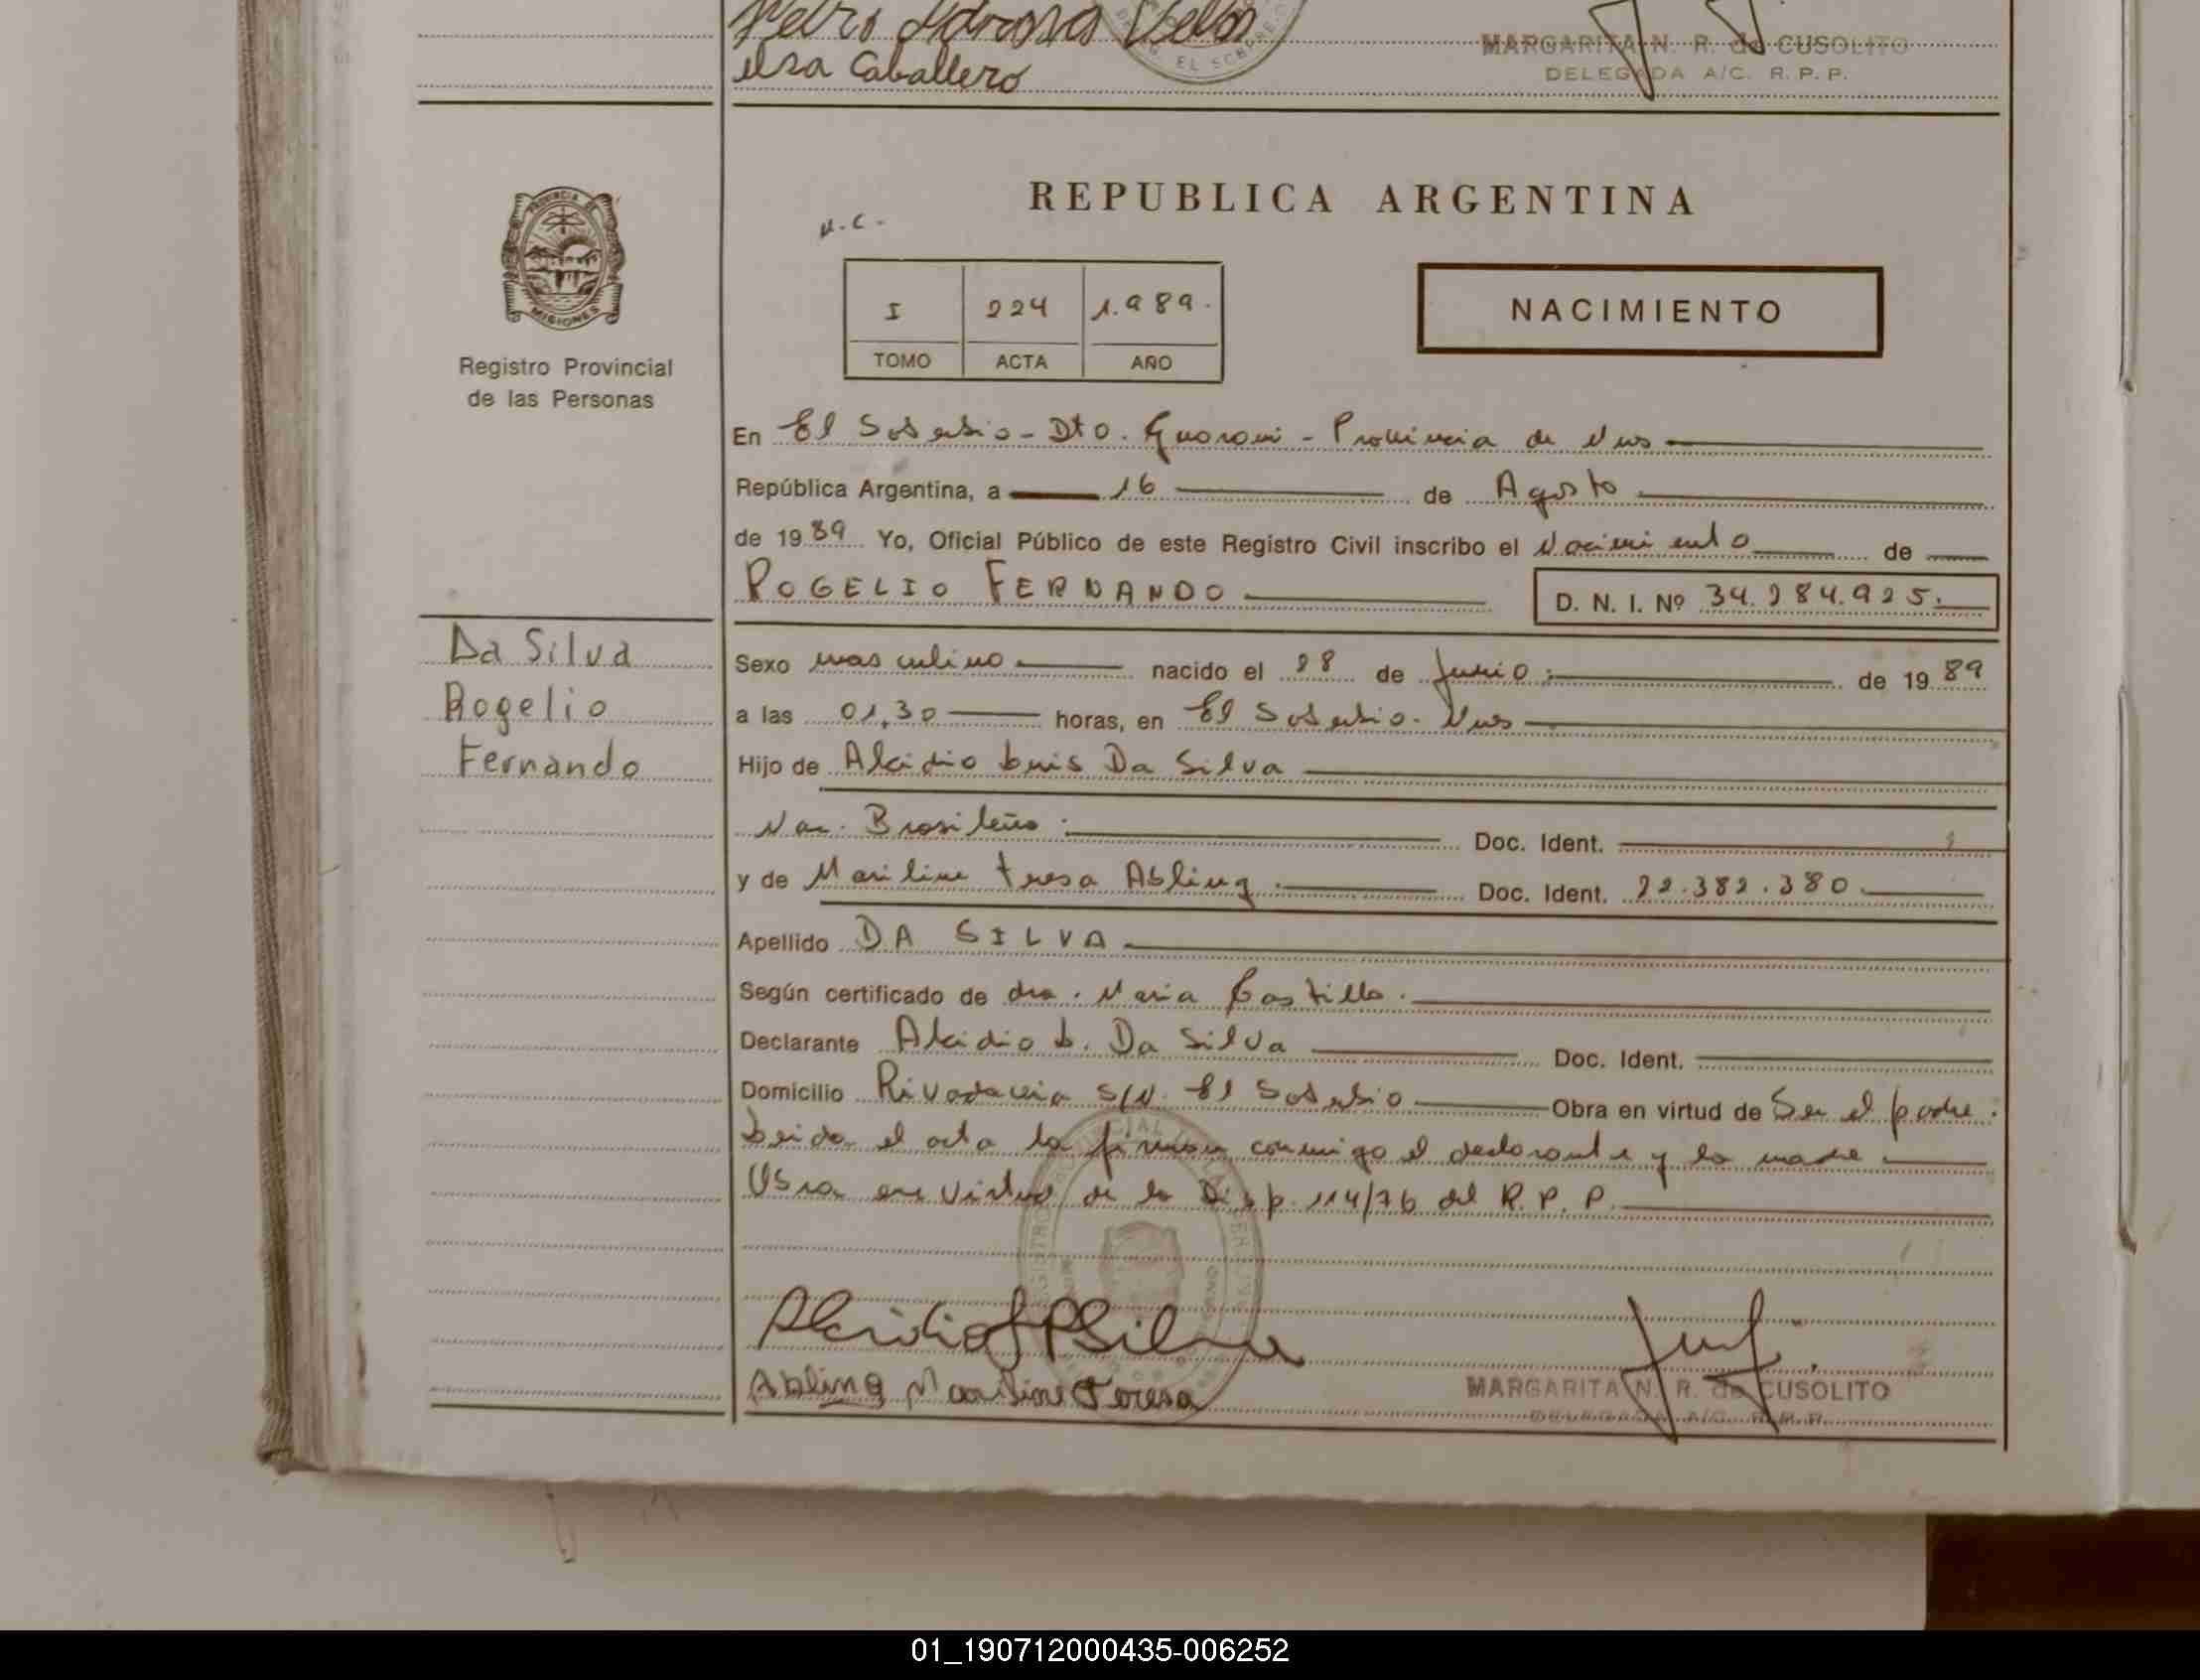 Pedro
Elsa Caballero
EL SOBERBIO
MARGARITA N. R. de CUSOLITO
DELEGADA A/C. R. P. P.
PROVINCIA DE
MISIONES
Registro Provincial
de las Personas
REPUBLICA ARGENTINA
N.C.-
I 224 1.989.
TOMO ACTA AÑO
NACIMIENTO
En El Soberbio - Dto. Guarani - Provincia de Mnes
República Argentina, a 16 de Agosto
de 1989 Yo, Oficial Público de este Registro Civil inscribo el Nacimiento de
ROGELIO FERNANDO D. N. I. Nº 34.284.925.
Da Silva
Rogelio
Fernando
Sexo masculino nacido el 28 de Junio de 1989
a las 01,30 horas, en El Soberbio. Mnes
Hijo de Alcidio Luis Da Silva
Nac. Brasileño. Doc. Ident.
y de Mariline Teresa Abling. Doc. Ident. 22.382.380.
Apellido DA SILVA
Según certificado de dra. Maria Castillo.
Declarante Alcidio L. Da Silva Doc. Ident.
Domicilio Rivadavia S/N. El Soberbio Obra en virtud de Ser el padre.
Leida el acta la firman conmigo el declarante y la madre
Obra en virtud de la Disp. 114/76 del R. P. P.
Abling Mariline Teresa
MARGARITA N. R. de CUSOLITO
DELEGADA A/C. R. P. P.
01_190712000435-006252